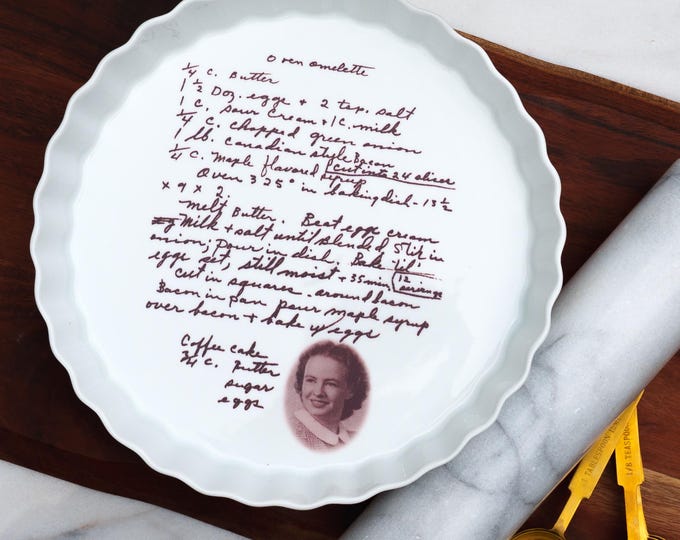 Oven omelette
1/4 c. Butter
1 1/2 Doz. eggs + 2 tsp. salt
1 c. sour cream + 1 c. milk
1/4 c. chopped green onion
1 lb. Canadian style Bacon
1/4 c. maple flavored syrup Cut into 24 slices
Oven 325° in baking dish - 13 1/2
x 9 x 2.
melt Butter. Beat eggs cream
milk + salt until Blended, Stir in
onion; pour in dish. Bake 'til
eggs set, still moist + 35 min 12 servings
cut in squares. around bacon
Bacon in pan pour maple syrup
over bacon + bake w/ eggs
Coffee cake
3/4 c. Butter
sugar
eggs
1 TABLESPOON
1/8 TEASPOON